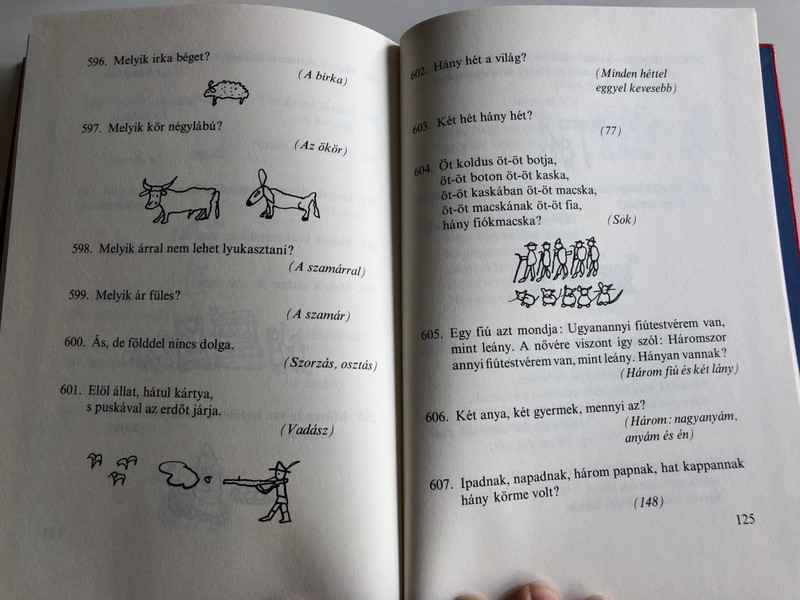 596. Melyik irka béget?
(A birka)
597. Melyik kör négylábú?
(Az ökör)
598. Melyik árral nem lehet lyukasztani?
(A szamárral)
599. Melyik ár füles?
(A szamár)
600. Ás, de földdel nincs dolga.
(Szorzás, osztás)
601. Elöl állat, hátul kártya,
s puskával az erdőt járja.
(Vadász)
602. Hány hét a világ?
(Minden héttel
eggyel kevesebb)
603. Két hét hány hét?
(77)
604. Öt koldus öt-öt botja,
öt-öt boton öt-öt kaska,
öt-öt kaskában öt-öt macska,
öt-öt macskának öt-öt fia,
hány fiókmacska?
(Sok)
605. Egy fiú azt mondja: Ugyanannyi fiútestvérem van,
mint leány. A nővére viszont így szól: Háromszor
annyi fiútestvérem van, mint leány. Hányan vannak?
(Három fiú és két lány)
606. Két anya, két gyermek, mennyi az?
(Három: nagyanyám,
anyám és én)
607. Ipadnak, napadnak, három papnak, hat kappannak
hány körme volt?
(148)
125